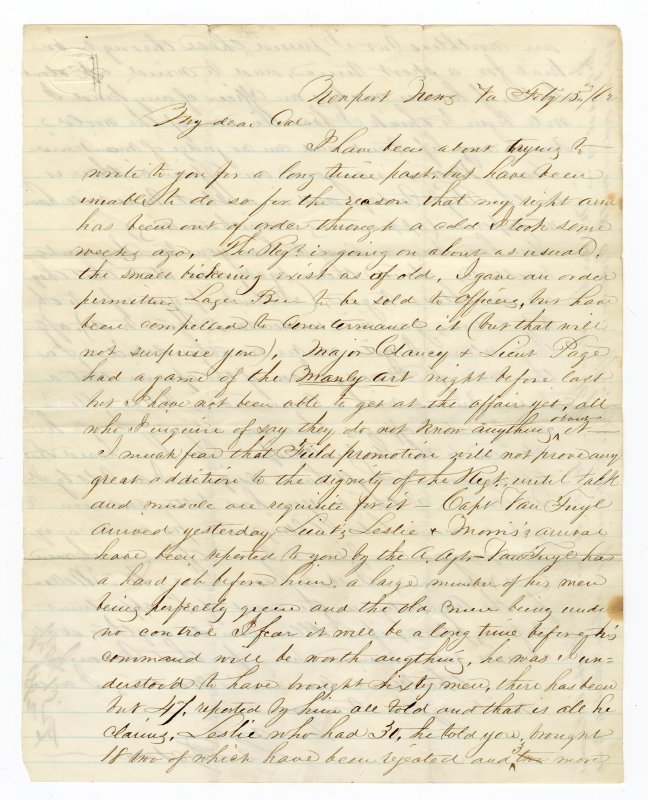 Newport News Va Feby 15th/62
My dear Col
I have been about trying to
write to you for a long time past, but have been
unable to do so for the reason that my right arm
has been out of order through a cold I took some
weeks ago, The Regt is going on about as usual,
the small bickering exist as of old, I gave an order
permitting Lager Bier to be sold to Officers, but have
been compelled to countermand it (but that will
not surprise you), Major Clancy & Lieut Page
had a game of the Manly art night before last
but I have not been able to get at the affair yet, all
who I inquire of say they do not know anything about it—
I much fear that Field promotion will not prove any
great addition to the dignity of the Regt, until talk
and muscle are requisite for it — Capt Van Tuyl
arrived yesterday, Lieuts Leslie & Morris's arrival
have been reported to you by the A. Agt— Van Tuyl has
a hard job before him, a large number of his men
being perfectly green and the old ones being under
no control I fear it will be a long time before his
command will be worth anything, he was un-
derstood to have brought sixty men, there has been
but 47, reported by him all told and that is all he
claims, Leslie who had 31, he told you, brought
18 two of which have been rejected and 3 more